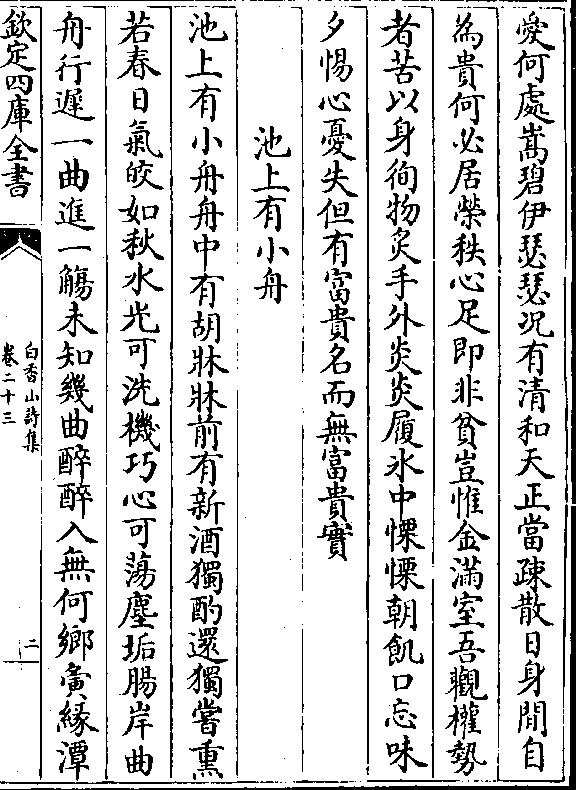 愛何處嵩碧伊瑟瑟况有清和天正當疎散日身閒自
為貴何必居榮秩心足即非貧豈惟金滿室吾觀權勢
者苦以身徇物炙手外炎炎履氷中慄慄朝飢口忘味
夕惕心憂失但有富貴名而無富貴實
池上有小舟
池上有小舟舟中有胡牀牀前有新酒獨酌還獨嘗熏
若春日氣皎如秋水光可洗機巧心可蕩塵垢腸岸曲
舟行遲一曲進一觴未知幾曲醉醉入無何鄉寅緣潭
欽定四庫全書
白香山詩集
卷二十三
二